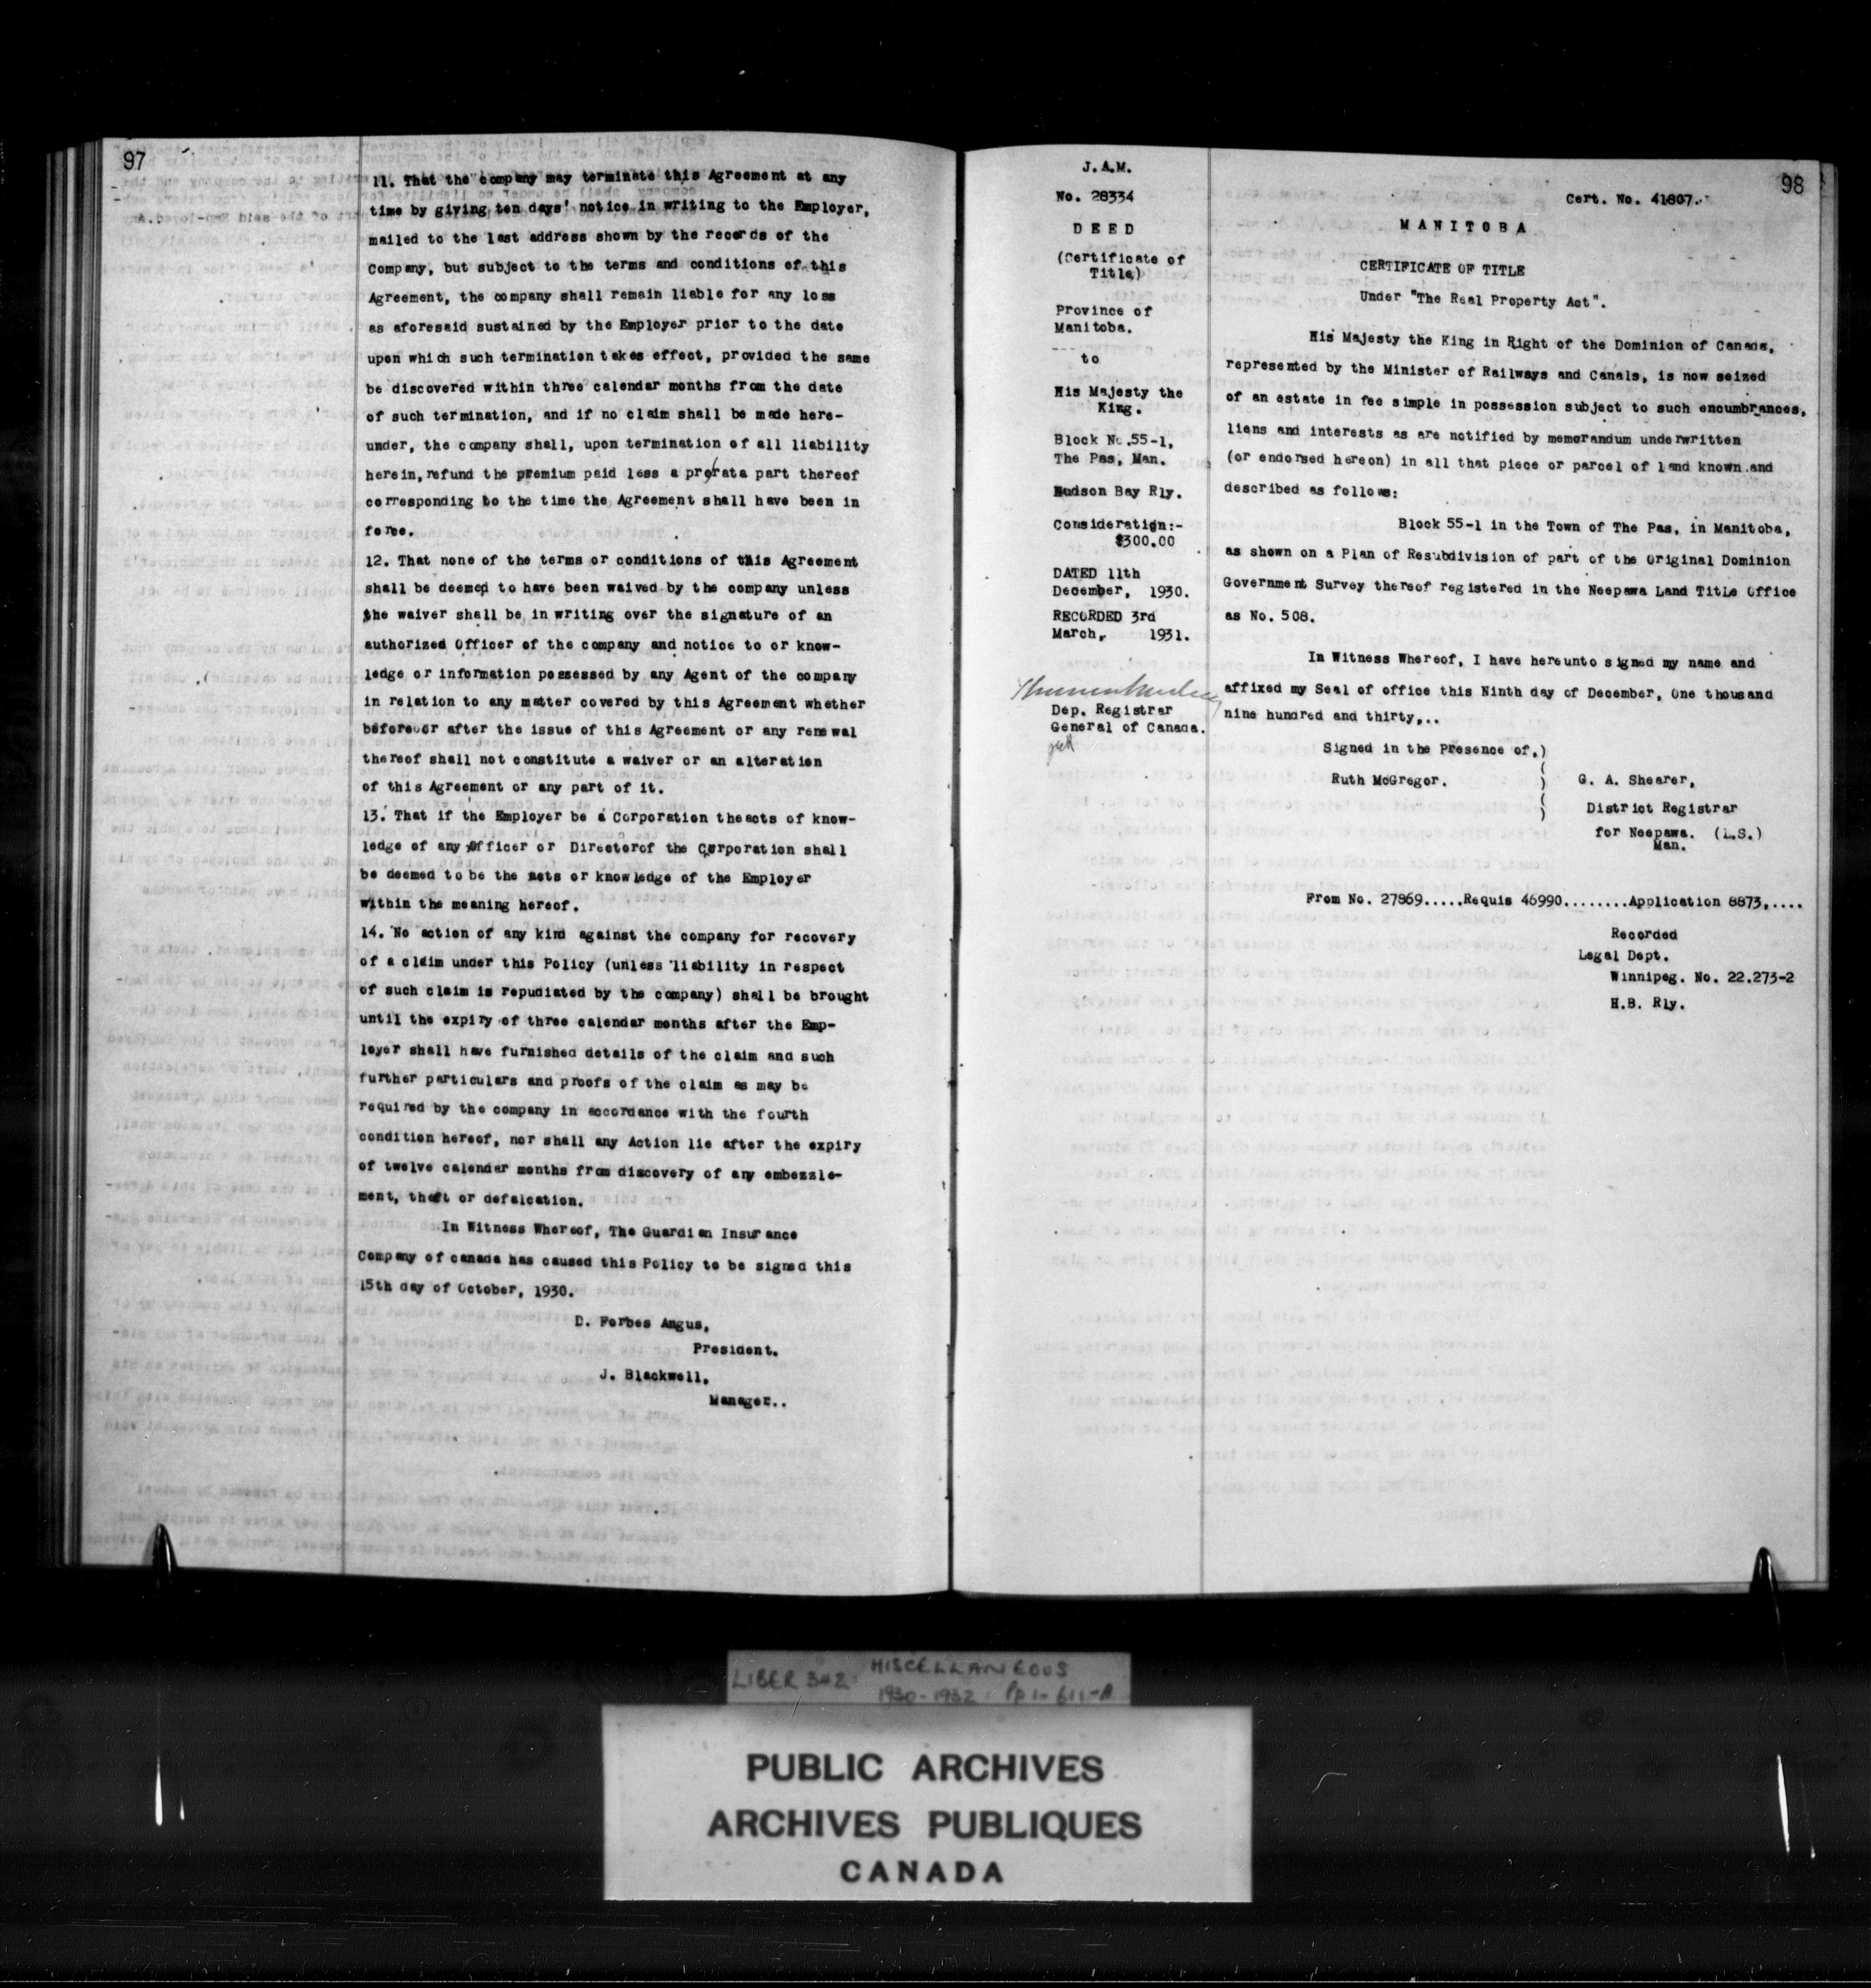 97
11. That the company may terminate this Agreement at any
time by giving ten days' notice in writing to the Employer,
mailed to the last address shown by the records of the
Company, but subject to the terms and conditions of this
Agreement, the company shall remain liable for any loss
as aforesaid sustained by the Employer prior to the date
upon which such termination takes effect, provided the same
be discovered within three calendar months from the date
of such termination, and if no claim shall be made here-
under, the company shall, upon termination of all liability
herein, refund the premium paid less a pro/rata part thereof
corresponding to the time the Agreement shall have been in
force.
12. That none of the terms or conditions of this Agreement
shall be deemed to have been waived by the company unless
the waiver shall be in writing over the signature of an
authorized Officer of the company and notice to or know-
ledge or information possessed by any Agent of the company
in relation to any matter covered by this Agreement whether
before or after the issue of this Agreement or any renewal
thereof shall not constitute a waiver or an alteration
of this Agreement or any part of it.
13. That if the Employer be a Corporation the acts of know-
ledge of any Officer or Director of the Corporation shall
be deemed to be the acts or knowledge of the Employer
within the meaning hereof.
14. No action of any kind against the company for recovery
of a claim under this Policy (unless liability in respect
of such claim is repudiated by the company) shall be brought
until the expiry of three calendar months after the Emp-
loyer shall have furnished details of the claim and such
further particulars and proofs of the claim as may be
required by the company in accordance with the fourth
condition hereof, nor shall any Action lie after the expiry
of twelve calendar months from discovery of any embezzle-
ment, theft or defalcation.
In Witness Whereof, The Guardian Insurance
Company of canada has caused this Policy to be signed this
15th day of October, 1930.
D. Forbes Angus,
President.
J. Blackwell,
Manager..
J.A.M.
No. 28334
DEED
(Certificate of
Title)
Province of
Manitoba.
to
His Majesty the
King.
Block No.55-1,
The Pas, Man.
Hudson Bay Rly.
Consideration:-
$300.00
DATED 11th
December, 1930.
RECORDED 3rd
March, 1931.
Dep. Registrar
General of Canada.
98
Cert. No. 41807.
MANITOBA
CERTIFICATE OF TITLE
Under "The Real Property Act".
His Majesty the King in Right of the Dominion of Canada,
represented by the Minister of Railways and Canals, is now seized
of an estate in fee simple in possession subject to such encumbrances,
liens and interests as are notified by memorandum underwritten
(or endorsed hereon) in all that piece or parcel of land known and
described as follows:
Block 55-1 in the Town of The Pas, in Manitoba,
as shown on a Plan of Resubdivision of part of the Original Dominion
Government Survey thereof registered in the Neepawa Land Title Office
as No. 508.
In Witness Whereof, I have hereunto signed my name and
affixed my Seal of office this Ninth day of December, One thousand
nine hundred and thirty,..
Signed in the Presence of,)
Ruth McGregor.
G. A. Shearer,
District Registrar
for Neepawa. (L.S.)
Man.
From No. 27869.....Requis 46990........Application 8873,....
Recorded
Legal Dept.
Winnipeg. No. 22.273-2
H.B. Rly.
LIBER 302 MISCELLANEOUS
1930-1932 Pp 1-611-A
PUBLIC ARCHIVES
ARCHIVES PUBLIQUES
CANADA